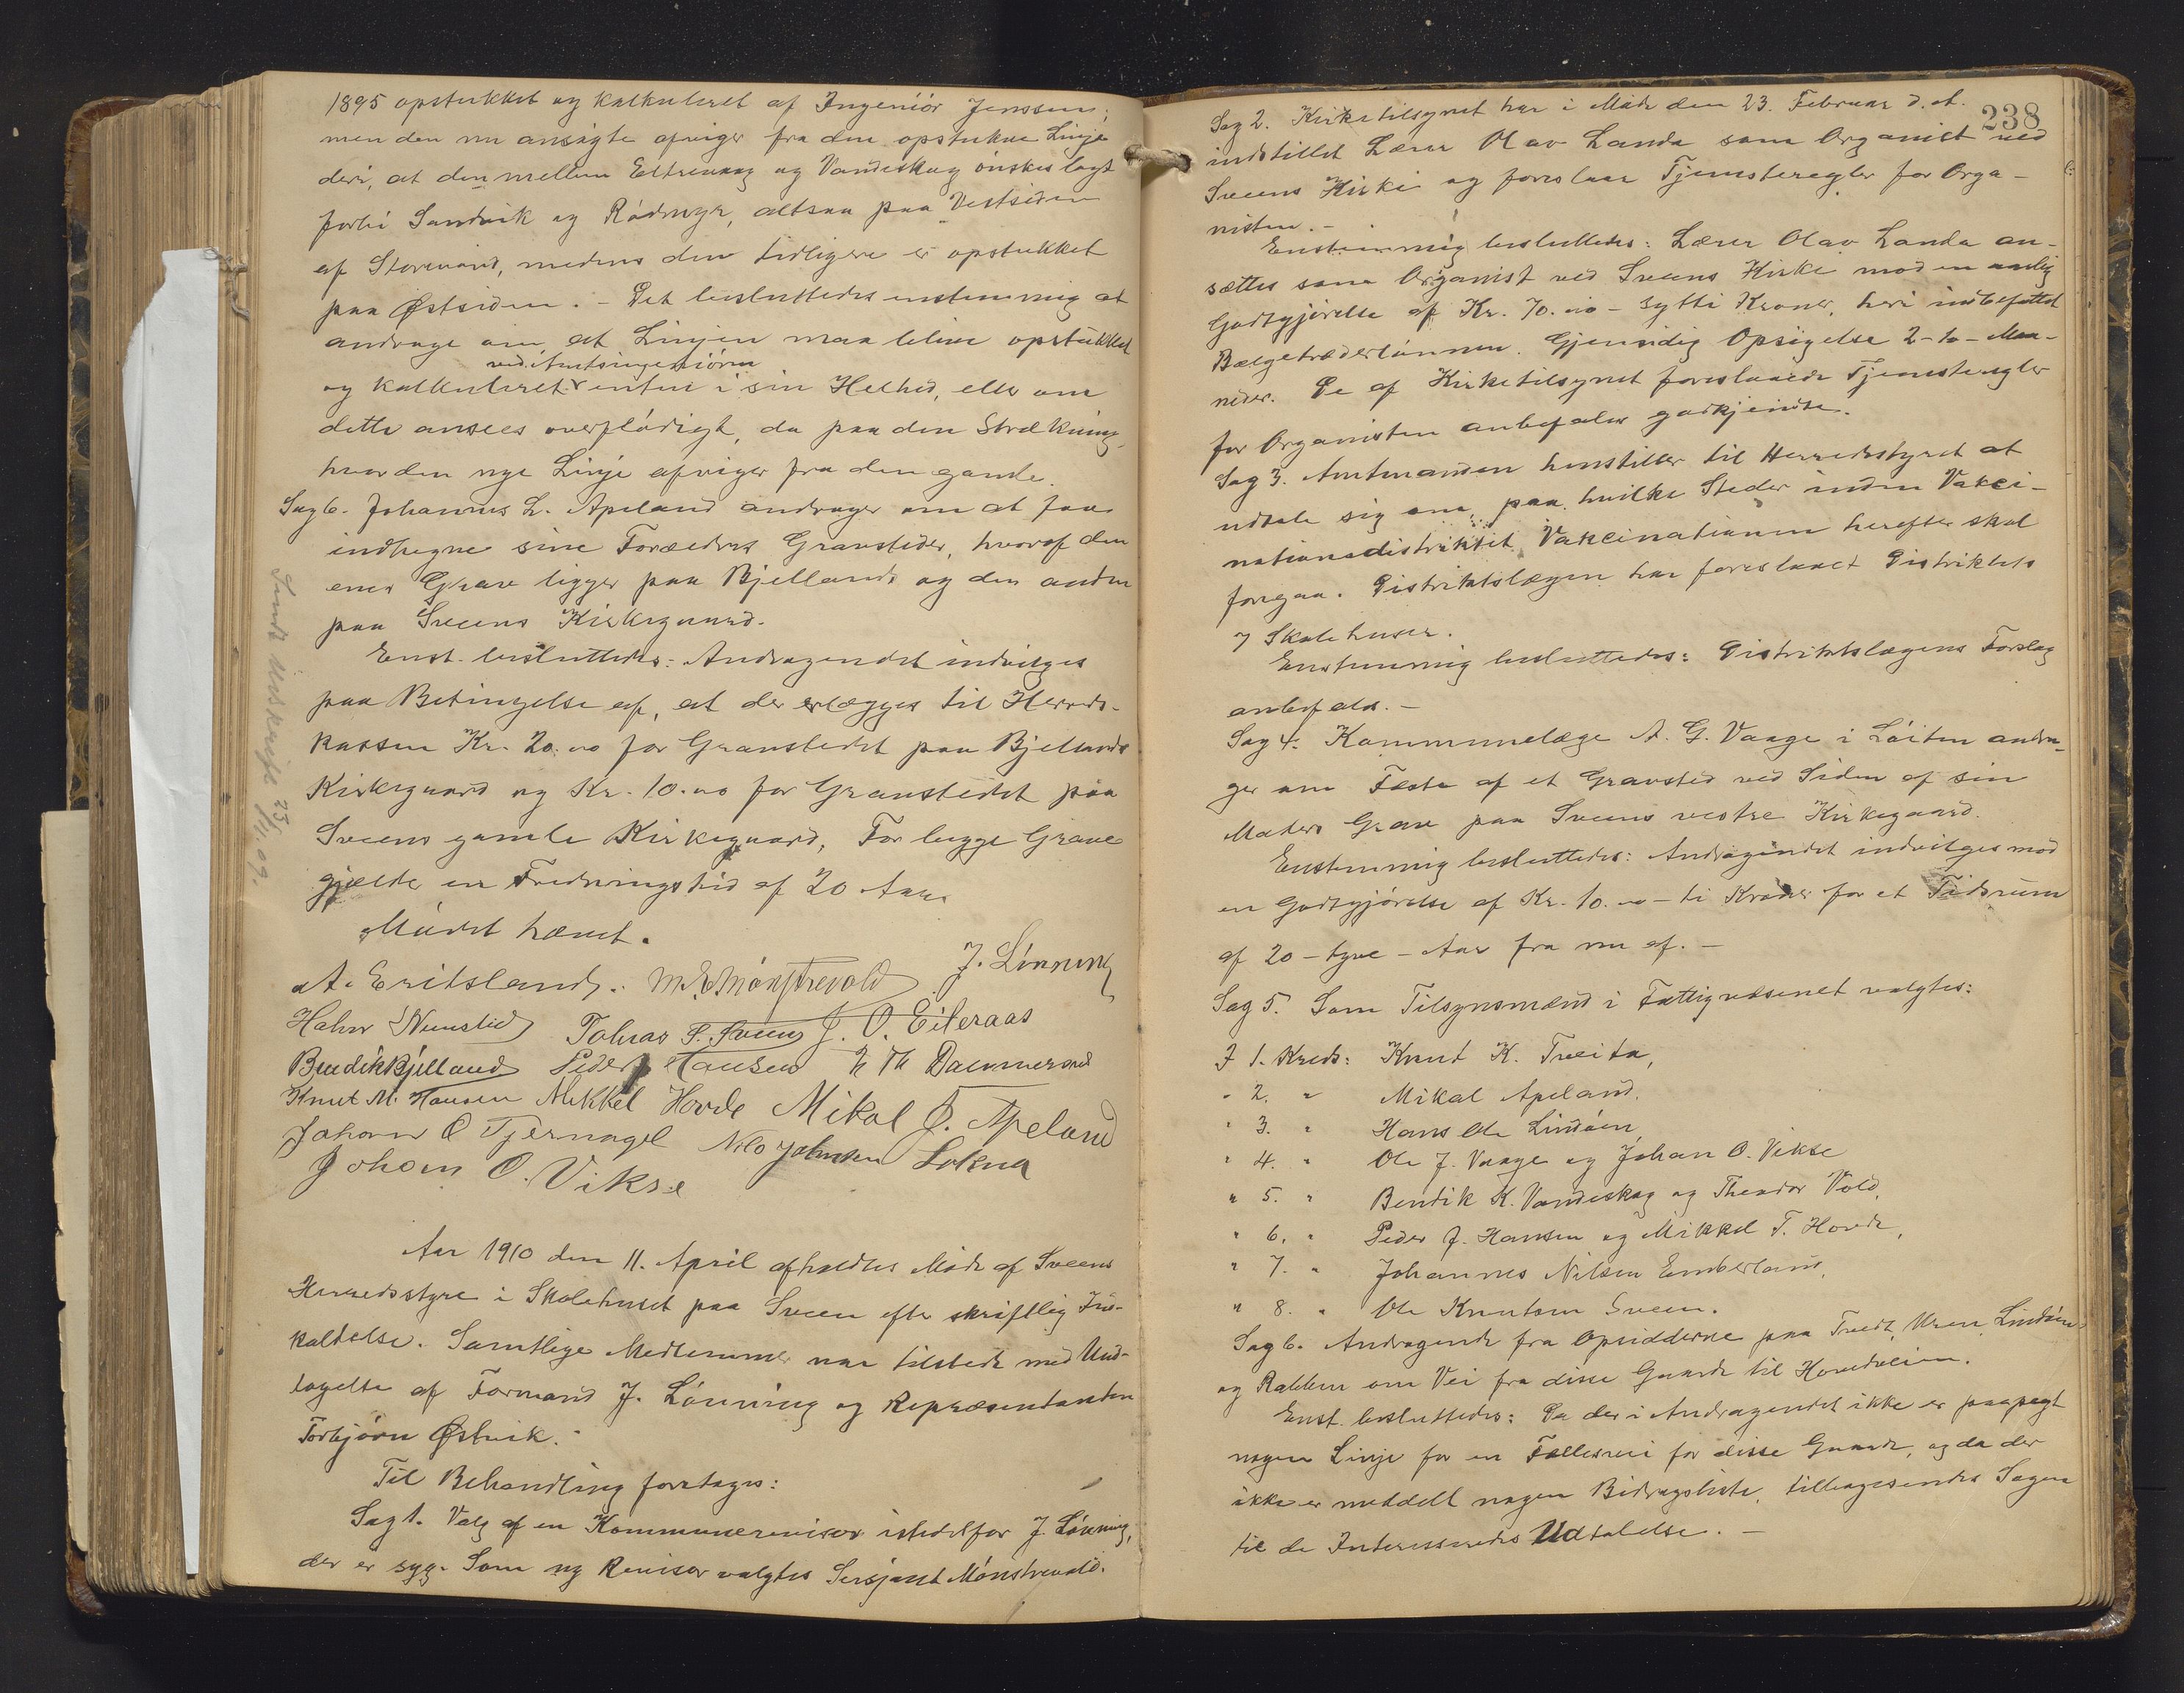 1895 opstukket og kalkuleret af Ingeniör Jenssen;
men den nu ansögte afviger fra den opstukne Linje
deri, at den mellem Eltrevaag og Vandeskog önskes lagt
forbi Sandvik og Rödmyr, altsaa paa Vestsiden
af Storevand, medens den tidligere er opstukket
paa Østsiden. - Det besluttedes enstemmig at
andrage om at Linjen maa blive opstukket
ved Amtsingeniören
og kalkuleret enten i sin Helhed, eller om
dette ansees overflödigt, da paa den Strækning,
hvor den nye Linje afviger fra den gamle.
Sag 6. Johannes L. Apeland andrager om at faa
indhegne sine Forældres Gravsteder, hvoraf den
enes Grav ligger paa Bjellands og den anden
paa Sveens Kirkegaard.
Enst. besluttedes: Andragendet indvilges
paa Betingelse af, at der erlægges til Herreds-
kassen Kr. 20.00 for Gravstedet paa Bjellands
Kirkegaard og Kr. 10.00 for Gravstedet paa
Sveens gamle Kirkegaard, For begge Grave
gjælder en Fredningstid af 20 Aar.
Mödet hævet.
Sendt Udskrift 23/11.09.
A. Eritsland. M. E. Mönstrevold J. Lönning
Hahn Nernstid Tobias P. Sveen J. O. Eileraas
Bendik Bjelland Peder J Hansen Th Dammersnd
Knut M. Hansen Mikkel Hovde Mikal J. Apeland
Johan O Tjernagel Nils Johnsen Lokna
Johan O. Vikse
Aar 1910 den 11. April afholdtes Möde af Sveens
Herredsstyre i Skolehuset paa Sveen efter skriftlig Ind-
kaldelse. Samtlige Medlemmer var tilstede med Und-
tagelse af Formand J. Lönning og Repræsentanten
Torbjörn Østvik.
Til Behandling foretages:
Sag 1. Valg af en Kommunerevisor istedetfor J. Lönning,
der er syg. Som ny Revisor valgtes Sersjant Mönstrevold.
238
Sag 2. Kirketilsynet har i Möde den 23. Februar d. A.
indstillet Lærer Olav Landa som Organist ved
Sveens Kirke og foreslaar Tjenesteregler for Orga-
nisten. -
Enstemmig besluttedes: Lærer Olav Landa an-
sættes som Organist ved Sveens Kirke mod en aarlig
Godtgjörelse af Kr. 70.00 - sytti Kroner, heri indbefattet
Bælgetræderlönnen. Gjensidig Opsigelse 2 - to - Maa-
neder. De af Kirketilsynet foreslaaede Tjenesteregler
for Organisten anbefales godkjendte.
Sag 3. Amtmanden henstiller til Herredsstyret at
udtale sig om, paa hvilke Steder inden Vakci-
nationsdistriktet Vakcinationen herefter skal
foregaa. Distriktslægen har foreslaaet Distriktets
7 Skolehuser.
Enstemmig besluttedes: Distriktslægens Forslag
anbefales. -
Sag 4. Kommunelæge A. G. Vaage i Löiten andra-
ger om Fæste af et Gravsted ved Siden af sin
Moders Grav paa Sveens vestre Kirkegaard.
Enstemmig besluttedes: Andragendet indvilges mod
en Godtgjörelse af Kr. 10.00 - ti Kroner for et Tidsrum
af 20 - tyve - Aar fra nu af. -
Sag 5. Som Tilsynsmænd i Fattigvæsenet valgtes:
I 1. Kreds: Knut K. Tveita,
" 2. " Mikal Apeland.
" 3. " Hans Ole Lindöen
" 4. " Ole J. Vaage og Johan O. Vikse
" 5. " Bendik K. Vandeskog og Theodor Vold,
" 6. " Peder J. Hansen og Mikkel T. Hovde,
" 7. " Johannes Nilsen Emberland,
" 8. " Ole Knutsen Sveen.
Sag 6. Andragende fra Opsidderne paa Tvedt, Uren, Lindöen
og Rabben om Vei fra disse Gaarde til Hovedveien.
Enst. besluttedes: Da der i Andragendet ikke er paapegt
nogen Linje for en Fællesvei for disse Gaarde, og da der
ikke er meddelt nogen Bidragsliste, tilbagesendes Sagen
til de Interesseredes Udtalelse. -